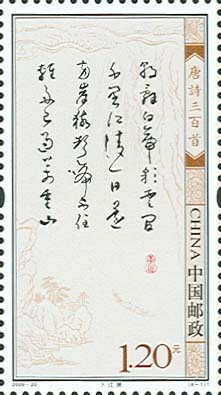 唐詩三百首
朝辭白帝彩雲間
千里江陵一日還
兩岸猿聲啼不住
輕舟已過萬重山
CHINA 中国邮政
1.20元
2009-20
下江陵